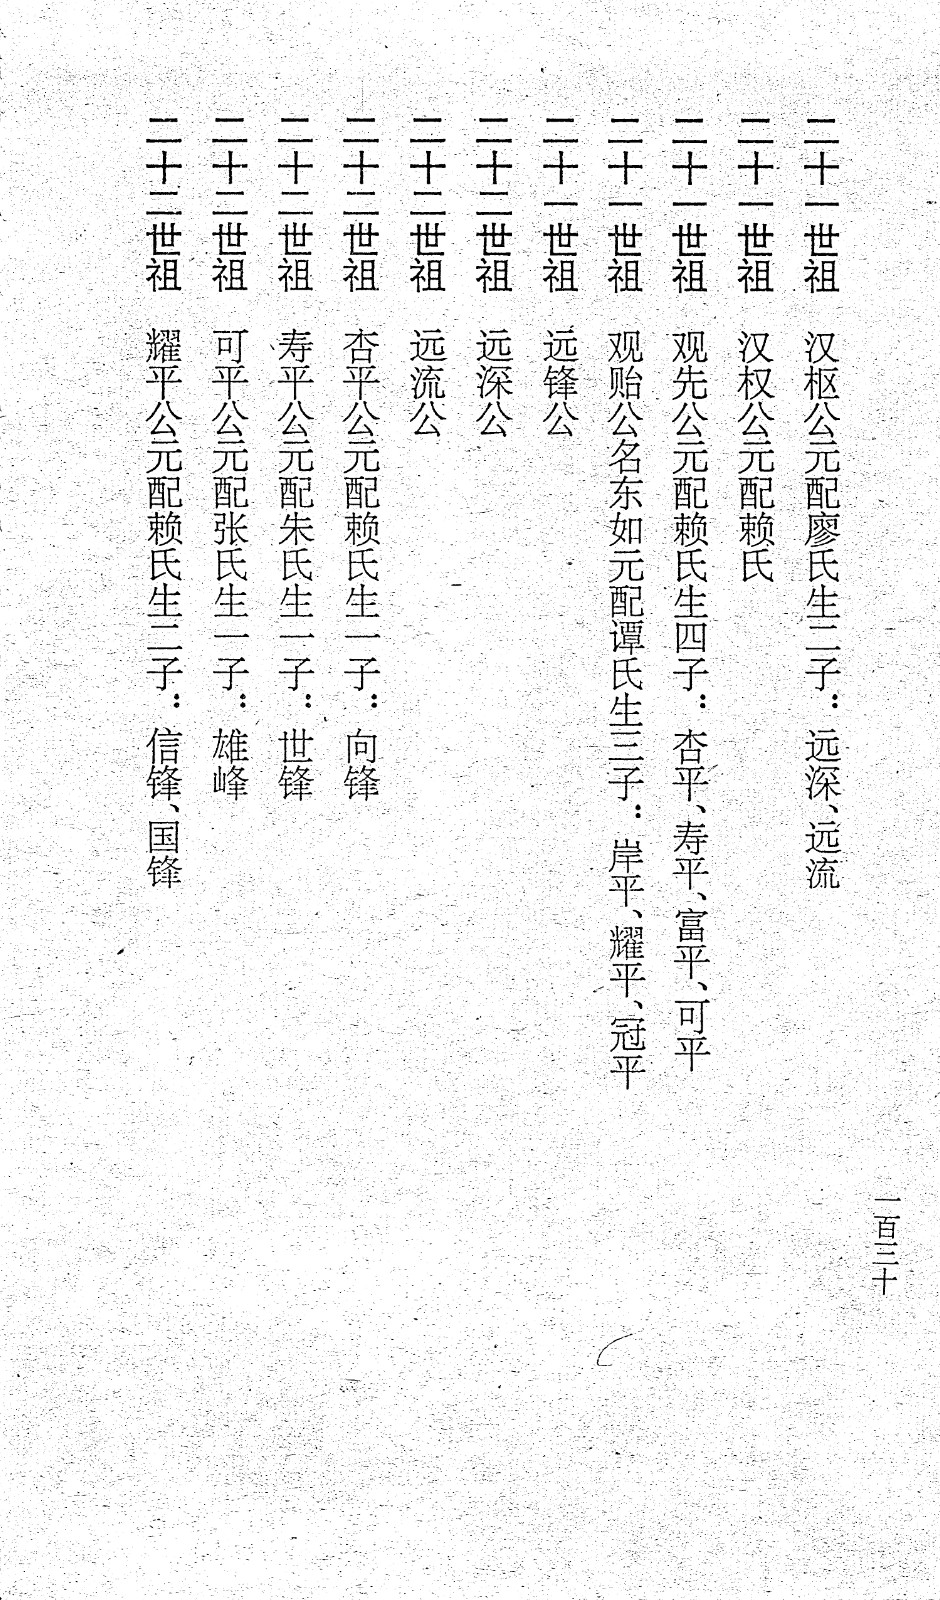 二十一世祖　汉枢公元配廖氏生二子：远深、远流
二十一世祖　汉权公元配赖氏
二十一世祖　观先公元配赖氏生四子：杏平、寿平、富平、可平
二十一世祖　观贻公名东如元配谭氏生三子：岸平、耀平、冠平
二十一世祖　远锋公
二十二世祖　远深公
二十二世祖　远流公
二十二世祖　杏平公元配赖氏生一子：向锋
二十二世祖　寿平公元配朱氏生一子：世锋
二十二世祖　可平公元配张氏生一子：雄峰
二十二世祖　耀平公元配赖氏生二子：信锋、国锋
一百三十